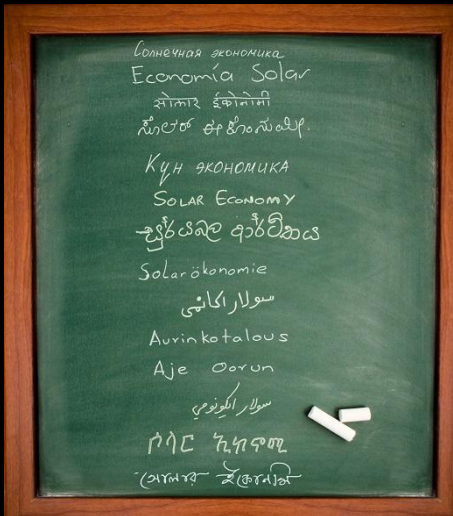 Солнечная экономика
Economía Solar
सोलार ईकोनोमी
ಸೋಲಾರ್ ಈಕೊನಮಿ.
Күн экономика
SOLAR ECONOMY
සූර්යබල ආර්ථිකය
Solarökonomie
سولار اکانمی
Aurinkotalous
Aje Oorun
سولار اكونومي
ሶላር ኢኮኖሚ
সোলার ইকোনমি